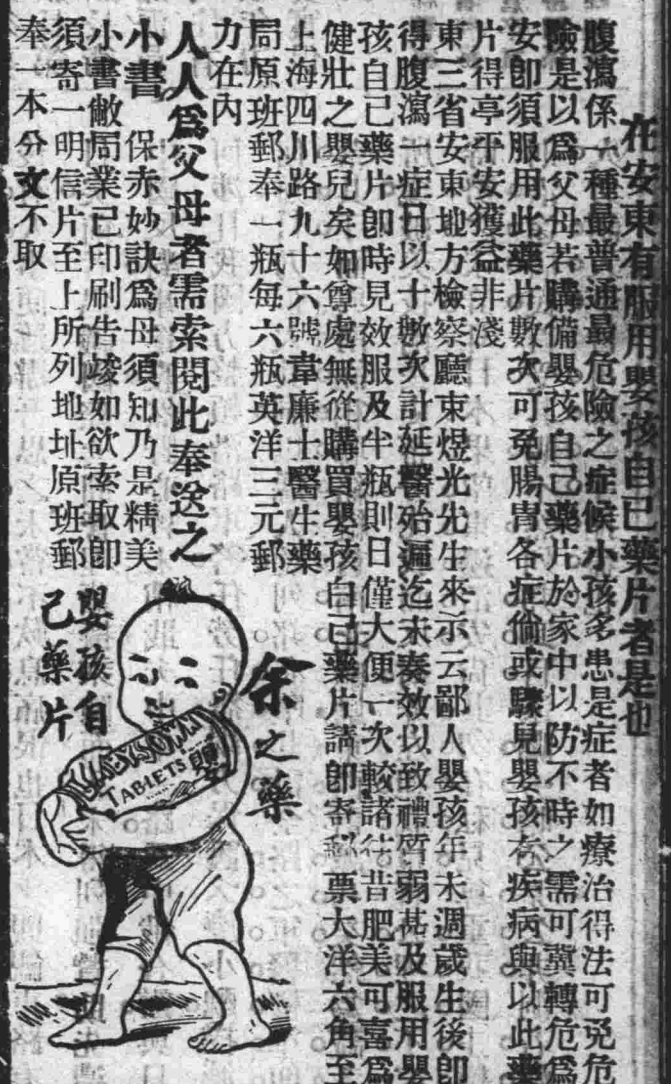 在安東有服用嬰孩自己藥片者是也
腹瀉係一種最普通最危險之症候小孩多患是症者如療治得法可免危
險是以爲父母若購備嬰孩自己藥片於家中以防不時之需可冀轉危爲
安卽須服用此藥片數次可免腸胃各症倘或驟見嬰孩有疾病與以此藥
片得享平安獲益非淺
東三省安東地方檢察廳束煜光先生來示云鄙人嬰孩年未週歲生後卽
得腹瀉一症日以十數次計延醫殆遍迄未奏效以致禮質弱甚及服用嬰
孩自己藥片卽時見效服及半瓶則日僅大便一次較諸往昔肥美可喜爲
健壯之嬰兒矣如尊處無從購買嬰孩自己藥片請卽寄郵票大洋六角至
上海四川路九十六號韋廉士醫生藥
局原班郵奉一瓶每六瓶英洋三元郵
力在內
人人爲父母者需索閱此奉送之
小書 保赤妙訣爲母須知乃是精美
小書敝局業已印刷告竣如欲索取卽
須寄一明信片至上所列地址原班郵
奉一本分文不取
余之藥
嬰孩自
己藥片
OWN
TABLETS